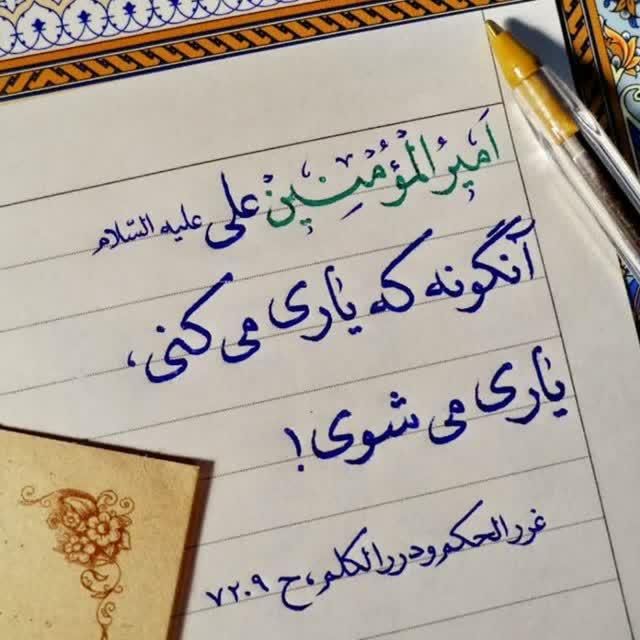 اَمیرُالْمُؤْمِنین علی علیه السّلام
آنگونه که یاری می کنی،
یاری می شوی!
غررالحکم و دررالکلم، ح ۷۲۰۹